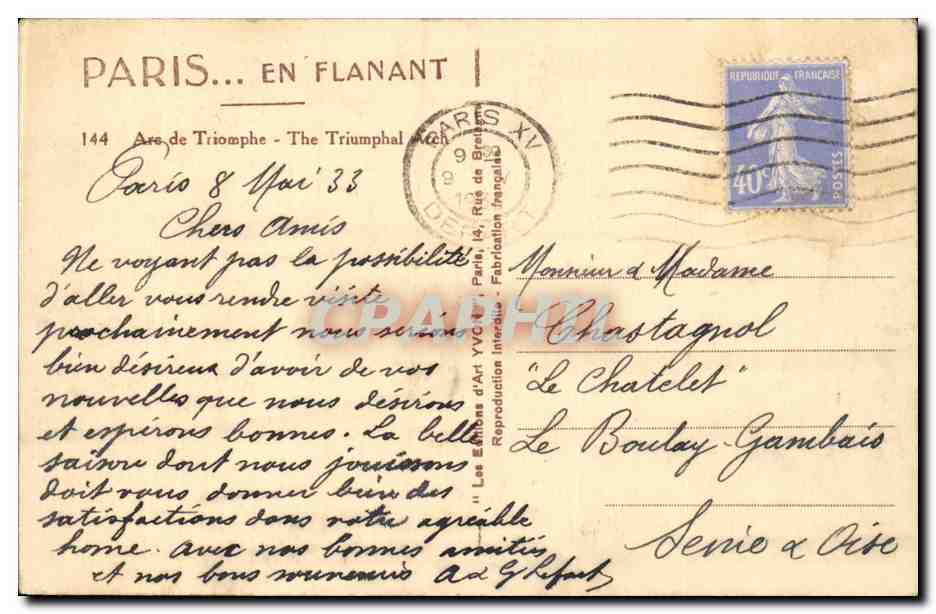 PARIS... EN FLANANT
144 Arc de Triomphe - The Triumphal Arch
Paris 8 Mai 33
Chers Amis
Ne voyant pas la possibilité
d'aller vous rendre visite
prochainement nous serions
bien désireux d'avoir de vos
nouvelles que nous désirons
et espérons bonnes. La belle
saison dont nous jouissons
doit vous donner bien des
satisfactions dans votre agréable
home. Avec nos bonnes amitiés
et nos bons souvenirs A & G
" Les Editions d'Art YVON " Paris, 14, Rue de Bretagne
Reproduction Interdite - Fabrication française
PARIS XV
REPUBLIQUE FRANÇAISE
40c
POSTES
Monsieur & Madame
Chastagnol
"Le Chatelet"
Le Boulay-Gambais
Seine & Oise
CPAPHIL